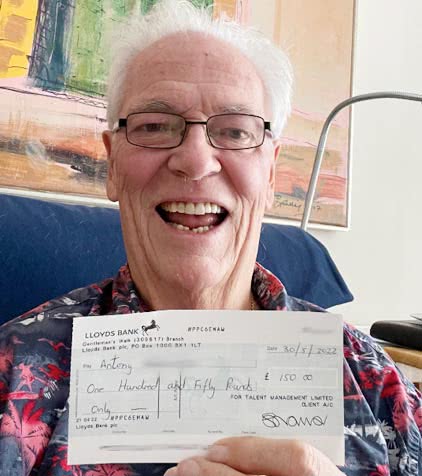 LLOYDS BANK #PPC6EMAW
Gentleman's Walk (309517) Branch
Lloyds Bank plc, PO Box 1000 BX1 1LT
Date 30/5/2022
Pay Antony
One Hundred and Fifty Pounds £ 150 00
Only — #PPC6EMAW
FOR TALENT MANAGEMENT LIMITED
CLIENT AJC
21 04 22
Lloyds Bank plc